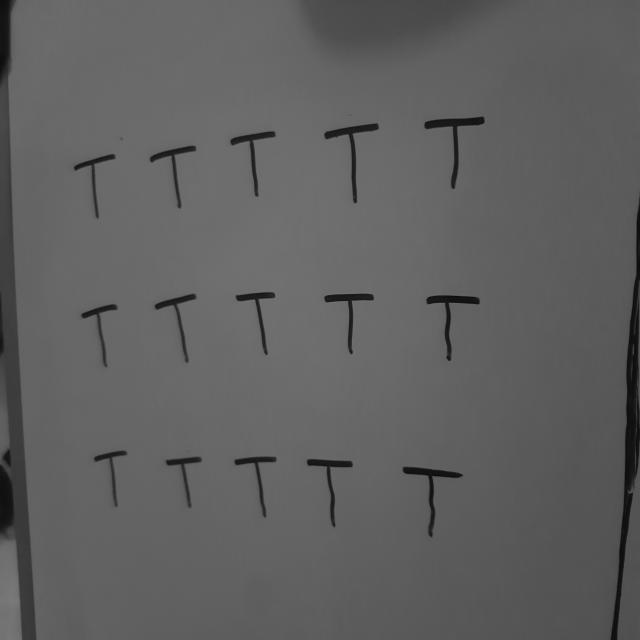 T T T T T
T T T T T
T T T T T